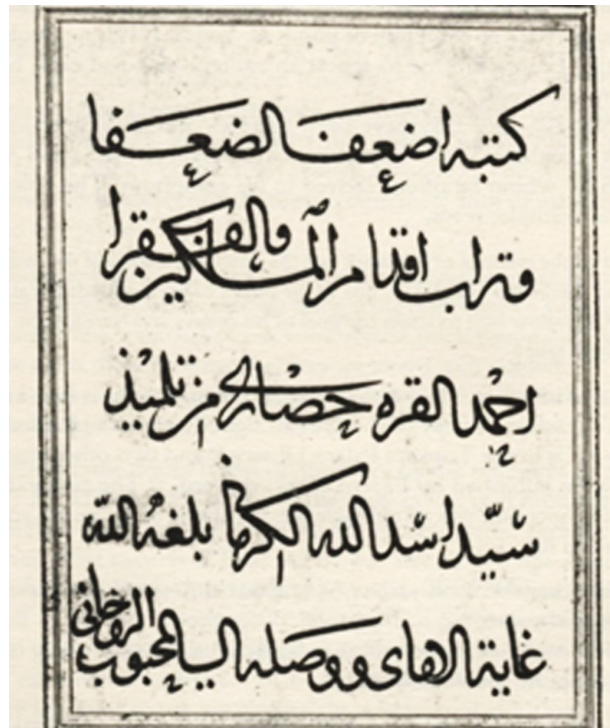 كتبه اضعف الضعفا
وتراب اقدام المساكين والفقرا
احمد القره حصاري من تلميذ
سيد اسد الله الكرماني بلغه الله
غاية الاماني ووصله الى المحبوب الروحاني